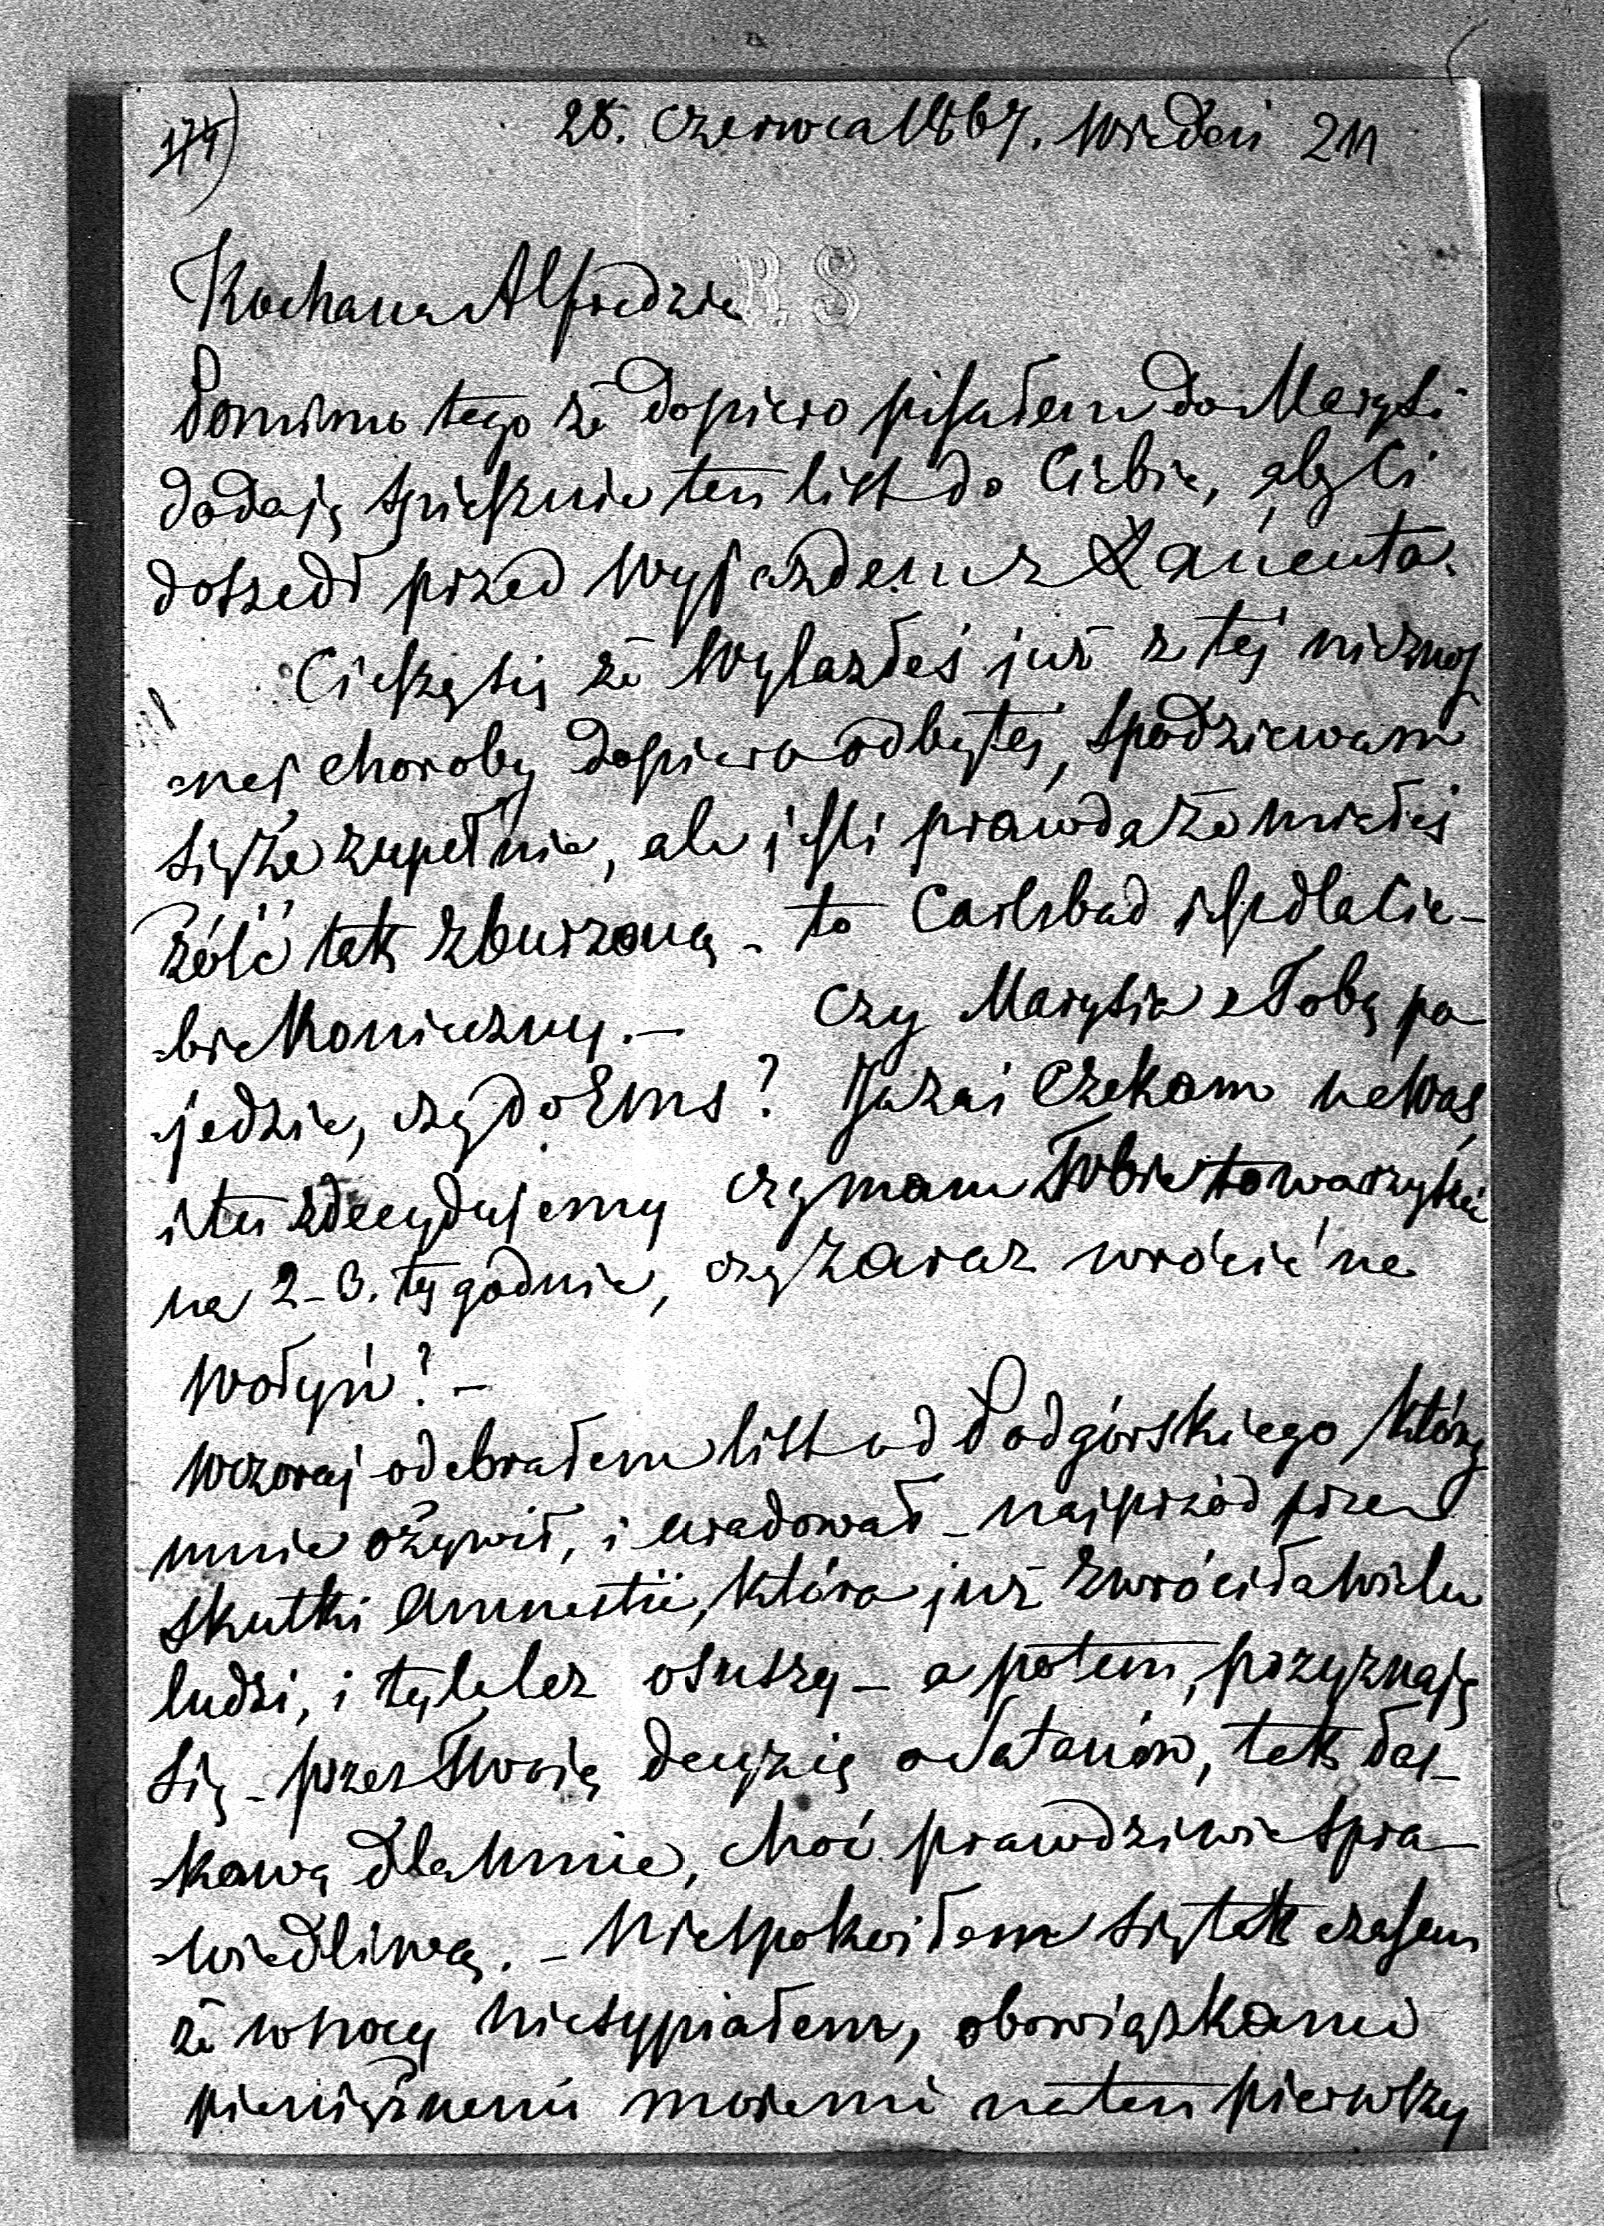 174)
28. Czerwca 1867. Wiedeń 211
R. S
Kochany Alfredzie
Pomimo tego że dopiero pisałem do Marysi
dodaję śpiesznie ten list do Ciebie, aby Ci
doszedł przed wyjazdem z Łańcuta.
Cieszę się że wylazłeś już z tej nieznoś
-nej choroby dopiero odbytej, spodziewam
się że zupełnie, ale jeśli prawda że miałeś
żółć tak zburzoną - to Carlsbad jest dla Cie-
-bie konieczny. - Czy Marysia z Tobą po
-jedzie, czy do Ems? Ja zaś czekam na Was
i tu zdecydujemy czy mam Tobie towarzyszyć
na 2-3. tygodnie, czy zaraz wrócić na
Wołyń? -
Wczoraj odebrałem list od Podgórskiego który
mnie ożywił, i uradował - najprzód przez
skutki Amnestii, która już zwróciła wielu
ludzi, i tyle łez osuszy - a potem, przyznaję
się - przez Twoją decyzię o Satanów, tak łas-
-kawą dla mnie, choć prawdziwie spra-
-wiedliwą. - Niespokoiłem się tak czasem
że w nocy nie sypiałem, obowiązkami
pieniężnemi mojemi na ten pierwszy